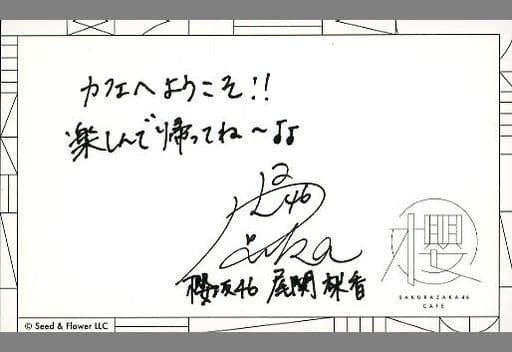 カフェへようこそ!!
楽しんで帰ってね〜♪♪
46
櫻坂46 尾関梨香
櫻
SAKURAZAKA46
CAFE
© Seed & Flower LLC